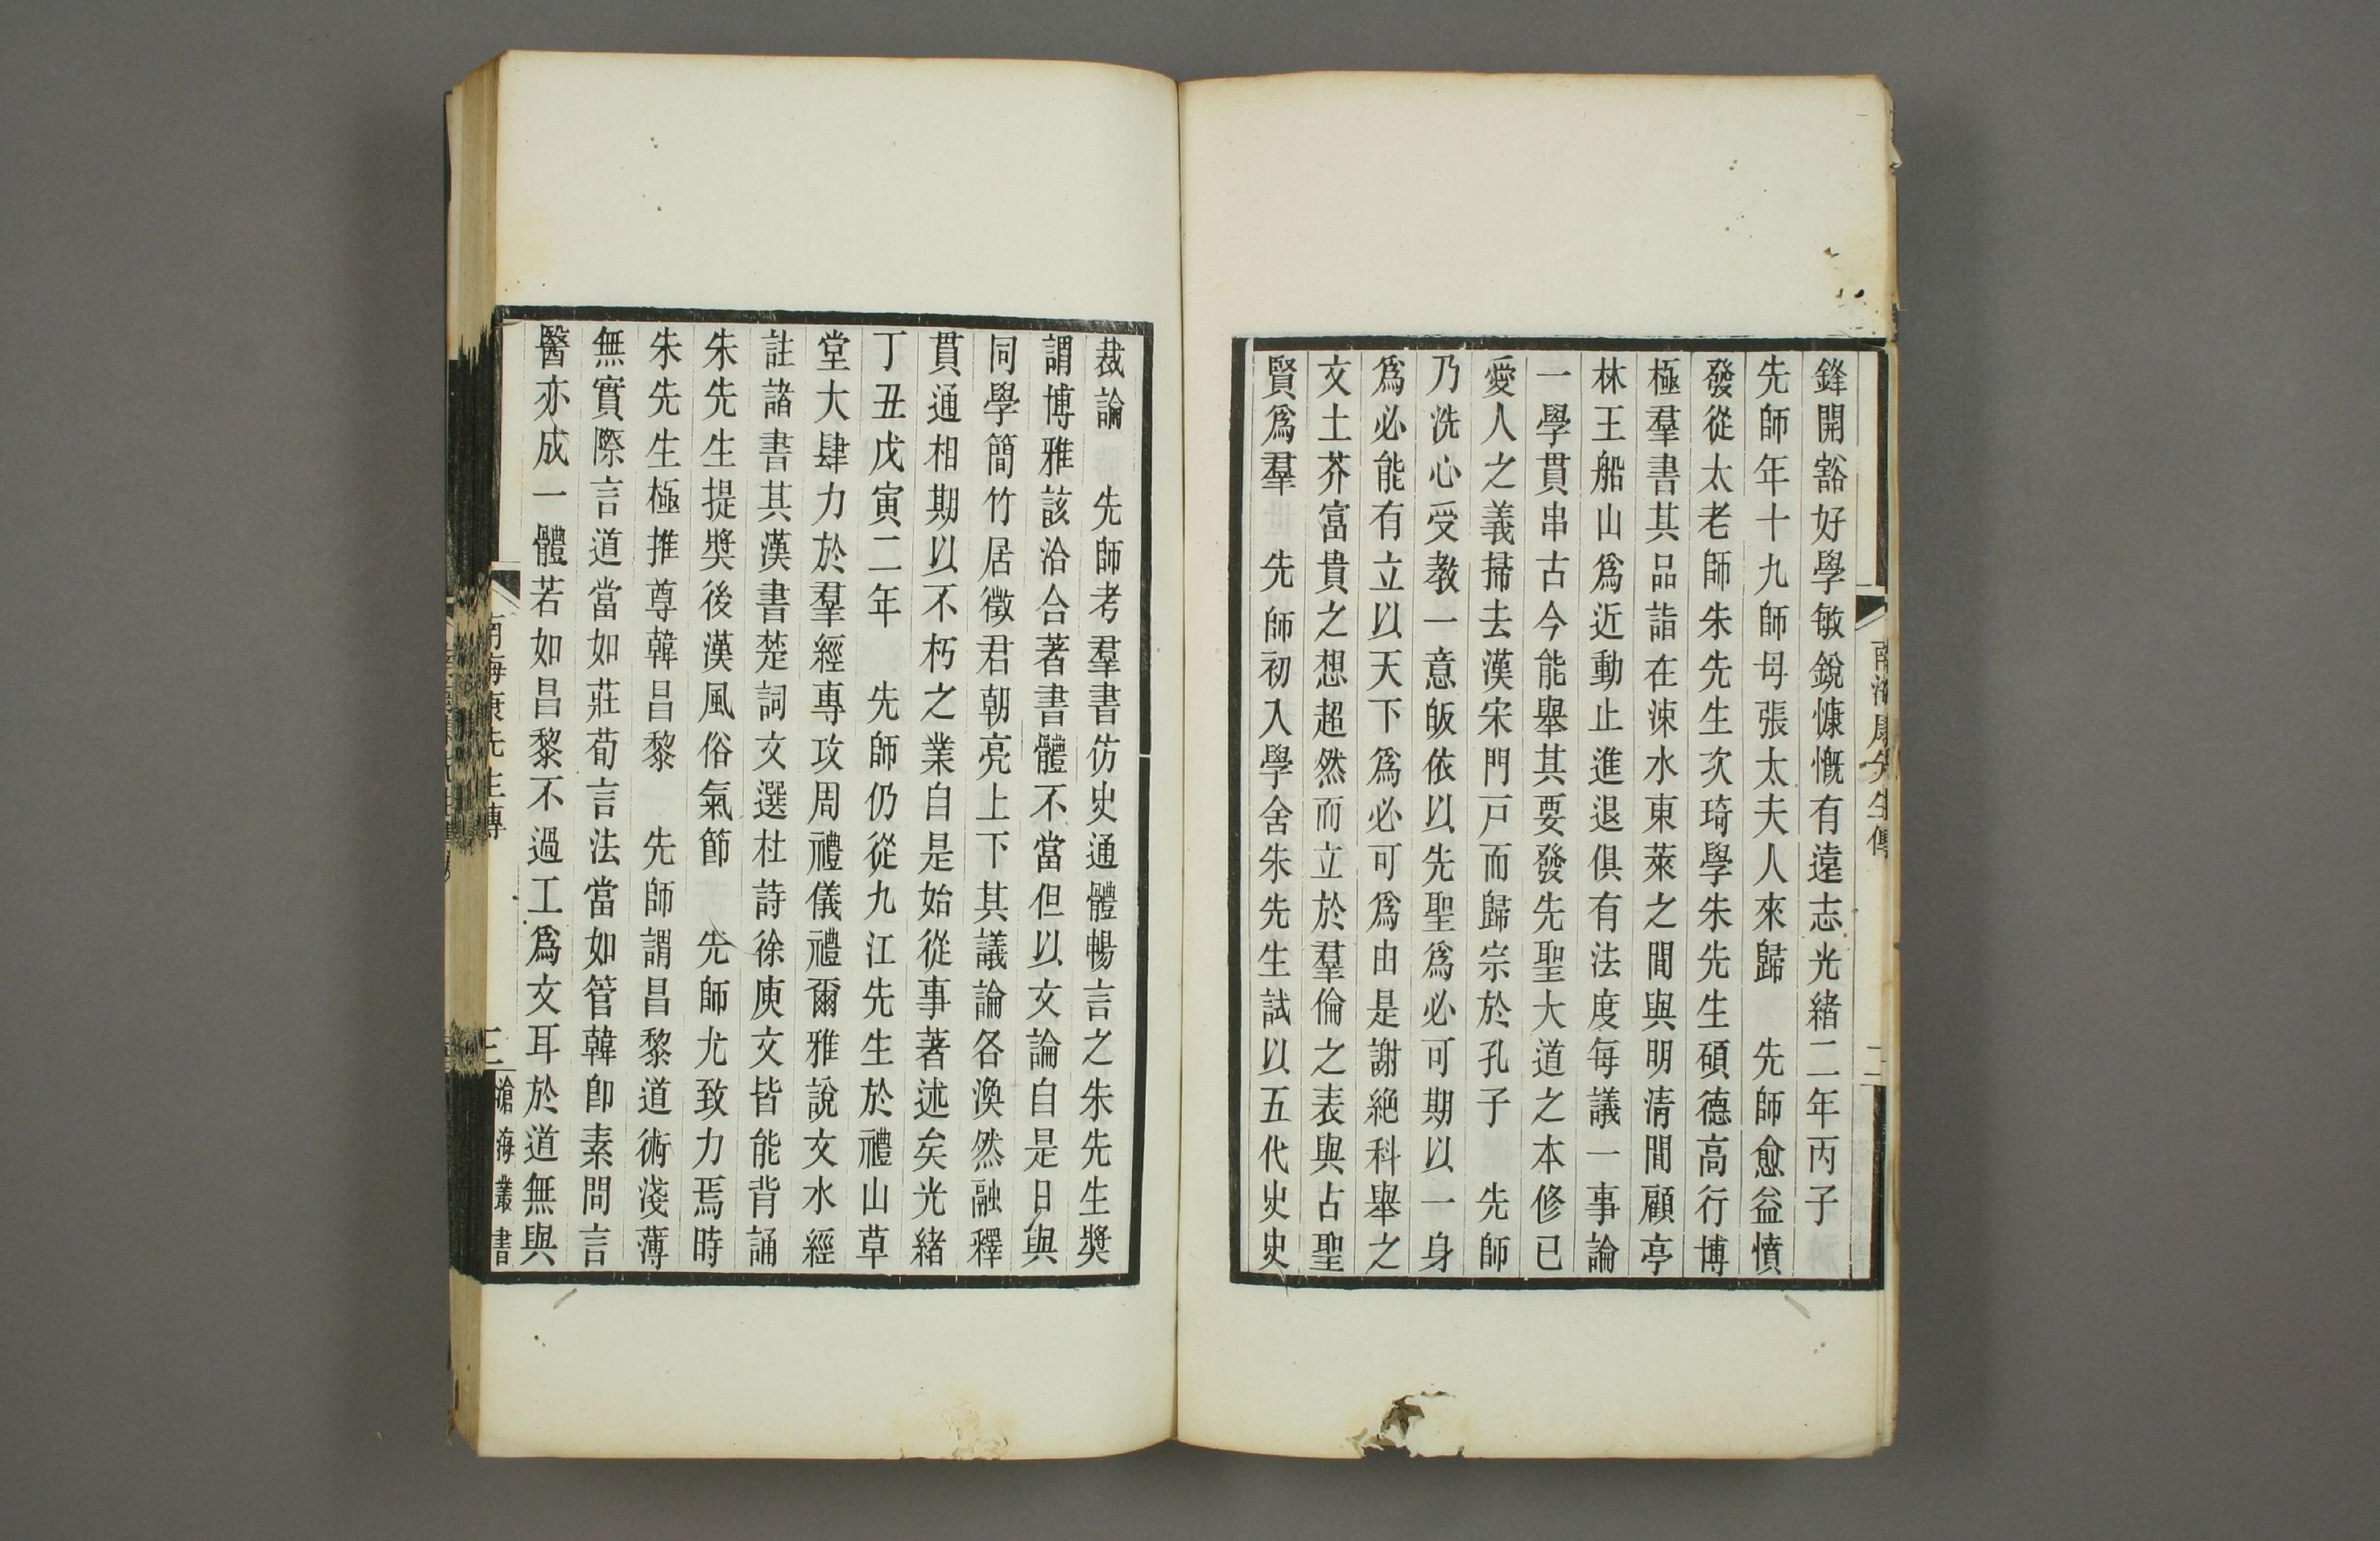 南海康先生傳 二
鋒開豁好學敏銳慷慨有遠志光緒二年丙子
先師年十九師母張太夫人來歸　先師愈益憤
發從太老師朱先生次琦學朱先生碩德高行博
極羣書其品詣在涑水東萊之間與明清間顧亭
林王船山爲近動止進退俱有法度每議一事論
一學貫串古今能舉其要發先聖大道之本修已
愛人之義掃去漢宋門戸而歸宗於孔子　先師
乃洗心受教一意皈依以先聖爲必可期以一身
爲必能有立以天下爲必可爲由是謝絕科舉之
文土芥富貴之想超然而立於羣倫之表與占聖
賢爲羣　先師初入學舍朱先生試以五代史史
裁論　先師考羣書仿史通體暢言之朱先生奬
謂博雅該洽合著書體不當但以文論自是日與
同學簡竹居徵君朝亮上下其議論各渙然融釋
貫通相期以不朽之業自是始從事著述矣光緒
丁丑戊寅二年　先師仍從九江先生於禮山草
堂大肆力於羣經專攻周禮儀禮爾雅說文水經
註諸書其漢書楚詞文選杜詩徐庾文皆能背誦
朱先生提奬後漢風俗氣節　先師尤致力焉時
朱先生極推尊韓昌黎　先師謂昌黎道術淺薄
無實際言道當如莊荀言法當如管韓卽素問言
醫亦成一體若如昌黎不過工爲文耳於道無與
南海康先生傳 三 滄海叢書